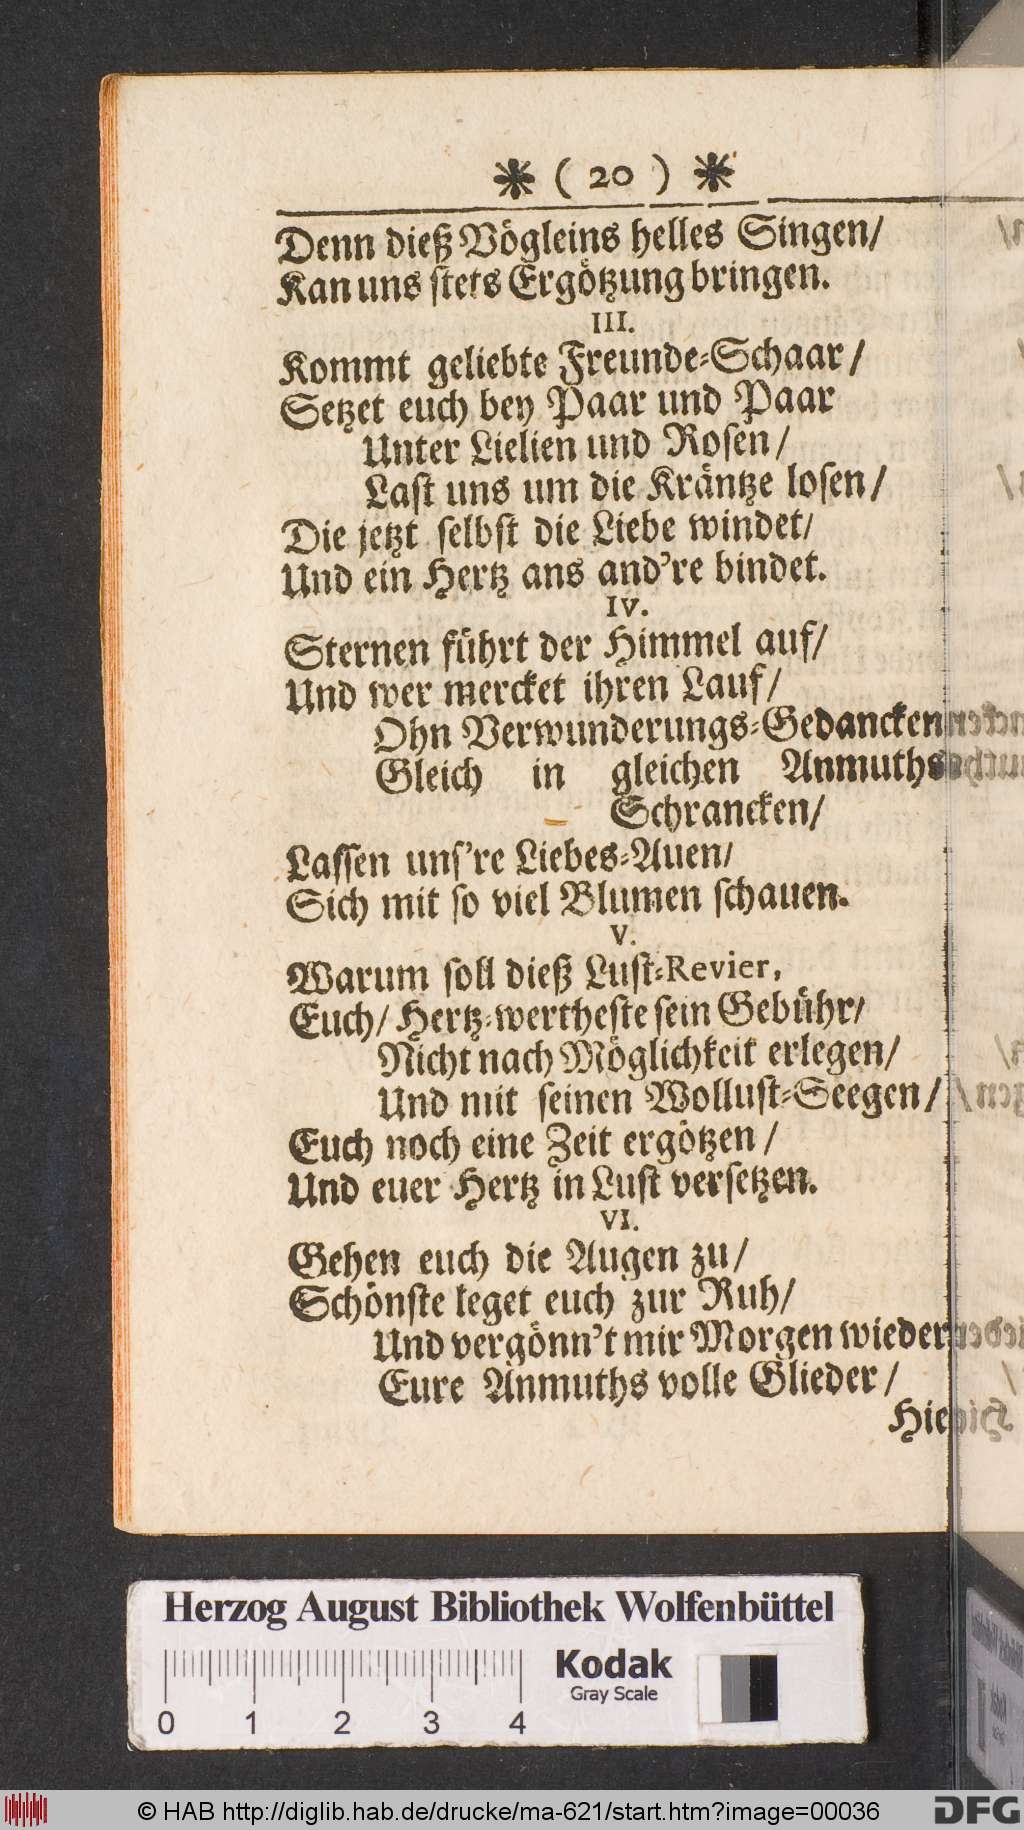 * ( 20 ) *
Denn dieß Vögleins helles Singen/
Kan uns stets Ergötzung bringen.
III.
Kommt geliebte Freunde-Schaar/
Setzet euch bey Paar und Paar
Unter Lielien und Rosen/
Last uns um die Kräntze losen/
Die jetzt selbst die Liebe windet/
Und ein Hertz ans and're bindet.
IV.
Sternen führt der Himmel auf/
Und wer mercket ihren Lauf/
Ohn Verwunderungs-Gedancken
Gleich in gleichen Anmuths
Schrancken/
Lassen uns're Liebes-Auen/
Sich mit so viel Blumen schauen.
V.
Warum soll dieß Lust-Revier,
Euch/ Hertz-wertheste sein Gebühr/
Nicht nach Möglichkeit erlegen/
Und mit seinen Wollust-Seegen/
Euch noch eine Zeit ergötzen/
Und euer Hertz in Lust versetzen.
VI.
Gehen euch die Augen zu/
Schönste leget euch zur Ruh/
Und vergönn't mir Morgen wieder
Eure Anmuths volle Glieder/
Hie
Herzog August Bibliothek Wolfenbüttel
Kodak
Gray Scale
0 1 2 3 4
© HAB http://diglib.hab.de/drucke/ma-621/start.htm?image=00036
DFG